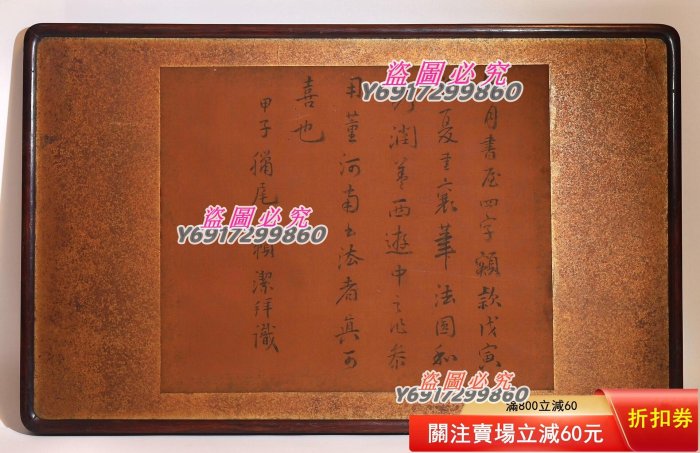 月書屋四字額款戊寅
夏重裝筆法圓和
潤蓋西遊中之作參
用董河南書法者真可
喜也
甲子獵尾 潔拜識
盜圖必究
Y6917299860
盜圖必究
Y6917299860
盜圖必究
Y6917299860
滿800立減60
關注賣場立減60元
折扣券